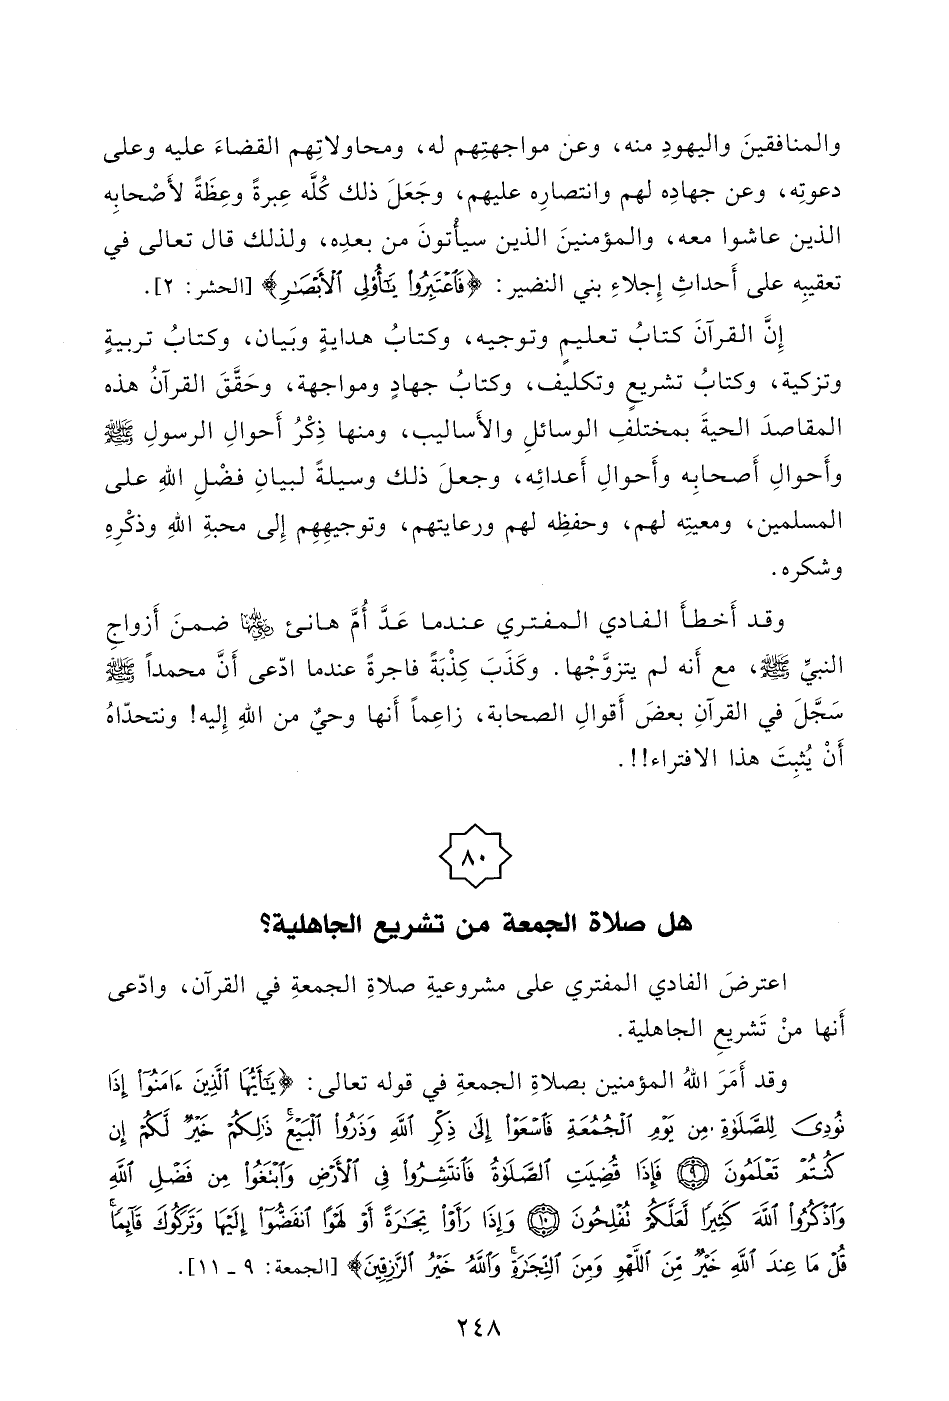 والمنافقينَ واليهودِ منه، وعن مواجهتِهم له، ومحاولاتِهم القضاءَ عليه وعلى
دعوتِه، وعن جهادِه لهم وانتصارِه عليهم، وجَعَلَ ذلك كُلَّه عِبرةً وعِظَةً لأَصْحابِه
الذين عاشوا معه، والمؤمنينَ الذين سيأْتونَ من بعدِه، ولذلك قال تعالى في
تعقيبِه على أَحداثِ إِجلاءِ بني النضير: ﴿فَٱعْتَبِرُوا۟ يَٰٓأُو۟لِى ٱلْأَبْصَٰرِ﴾ [الحشر: ٢].
إِنَّ القرآنَ كتابُ تعليمٍ وتوجيه، وكتابُ هدايةٍ وبَيان، وكتابُ تربيةٍ
وتزكية، وكتابُ تشريعٍ وتكليف، وكتابُ جهادٍ ومواجهة، وحَقَّقَ القرآنُ هذه
المقاصدَ الحيةَ بمختلفِ الوسائلِ والأَساليب، ومنها ذِكْرُ أَحوالِ الرسولِ ﷺ
وأَحوالِ أصحابِه وأَحوالِ أَعدائِه، وجعلَ ذلك وسيلةً لبيانِ فضْلِ اللهِ على
المسلمين، ومعيتِه لهم، وحفظِه لهم ورعايتهم، وتوجيهِهِم إِلى محبةِ اللهِ وذكْرِهِ
وشكره.
وقد أَخطأَ الفادي المفتري عندما عَدَّ أُمَّ هانئ رضي الله عنها ضمنَ أزواجِ
النبيِّ ﷺ، مع أنه لم يتزوَّجْها. وكَذَبَ كِذْبَةً فاجرةً عندما ادّعى أَنَّ محمداً ﷺ
سَجَّلَ في القرآنِ بعضَ أَقوالِ الصحابة، زاعِماً أَنها وحيٌ من اللهِ إِليه! ونتحدّاهُ
أَنْ يُثبِتَ هذا الافتراء!!.
٨٠
هل صلاة الجمعة من تشريع الجاهلية؟
اعترضَ الفادي المفتري على مشروعيةِ صلاةِ الجمعةِ في القرآن، وادّعى
أَنها منْ تَشريعِ الجاهلية.
وقد أَمَرَ اللهُ المؤمنين بصلاةِ الجمعةِ في قوله تعالى: ﴿يَٰٓأَيُّهَا ٱلَّذِينَ ءَامَنُوٓا۟ إِذَا
نُودِىَ لِلصَّلَوٰةِ مِن يَوْمِ ٱلْجُمُعَةِ فَٱسْعَوْا۟ إِلَىٰ ذِكْرِ ٱللَّهِ وَذَرُوا۟ ٱلْبَيْعَ ۚ ذَٰلِكُمْ خَيْرٌ لَّكُمْ إِن
كُنتُمْ تَعْلَمُونَ ﴿٩﴾ فَإِذَا قُضِيَتِ ٱلصَّلَوٰةُ فَٱنتَشِرُوا۟ فِى ٱلْأَرْضِ وَٱبْتَغُوا۟ مِن فَضْلِ ٱللَّهِ
وَٱذْكُرُوا۟ ٱللَّهَ كَثِيرًا لَّعَلَّكُمْ تُفْلِحُونَ ﴿١٠﴾ وَإِذَا رَأَوْا۟ تِجَٰرَةً أَوْ لَهْوًا ٱنفَضُّوٓا۟ إِلَيْهَا وَتَرَكُوكَ قَآئِمًا ۚ
قُلْ مَا عِندَ ٱللَّهِ خَيْرٌ مِّنَ ٱللَّهْوِ وَمِنَ ٱلتِّجَٰرَةِ ۚ وَٱللَّهُ خَيْرُ ٱلرَّٰزِقِينَ﴾ [الجمعة: ٩ - ١١].
٢٤٨